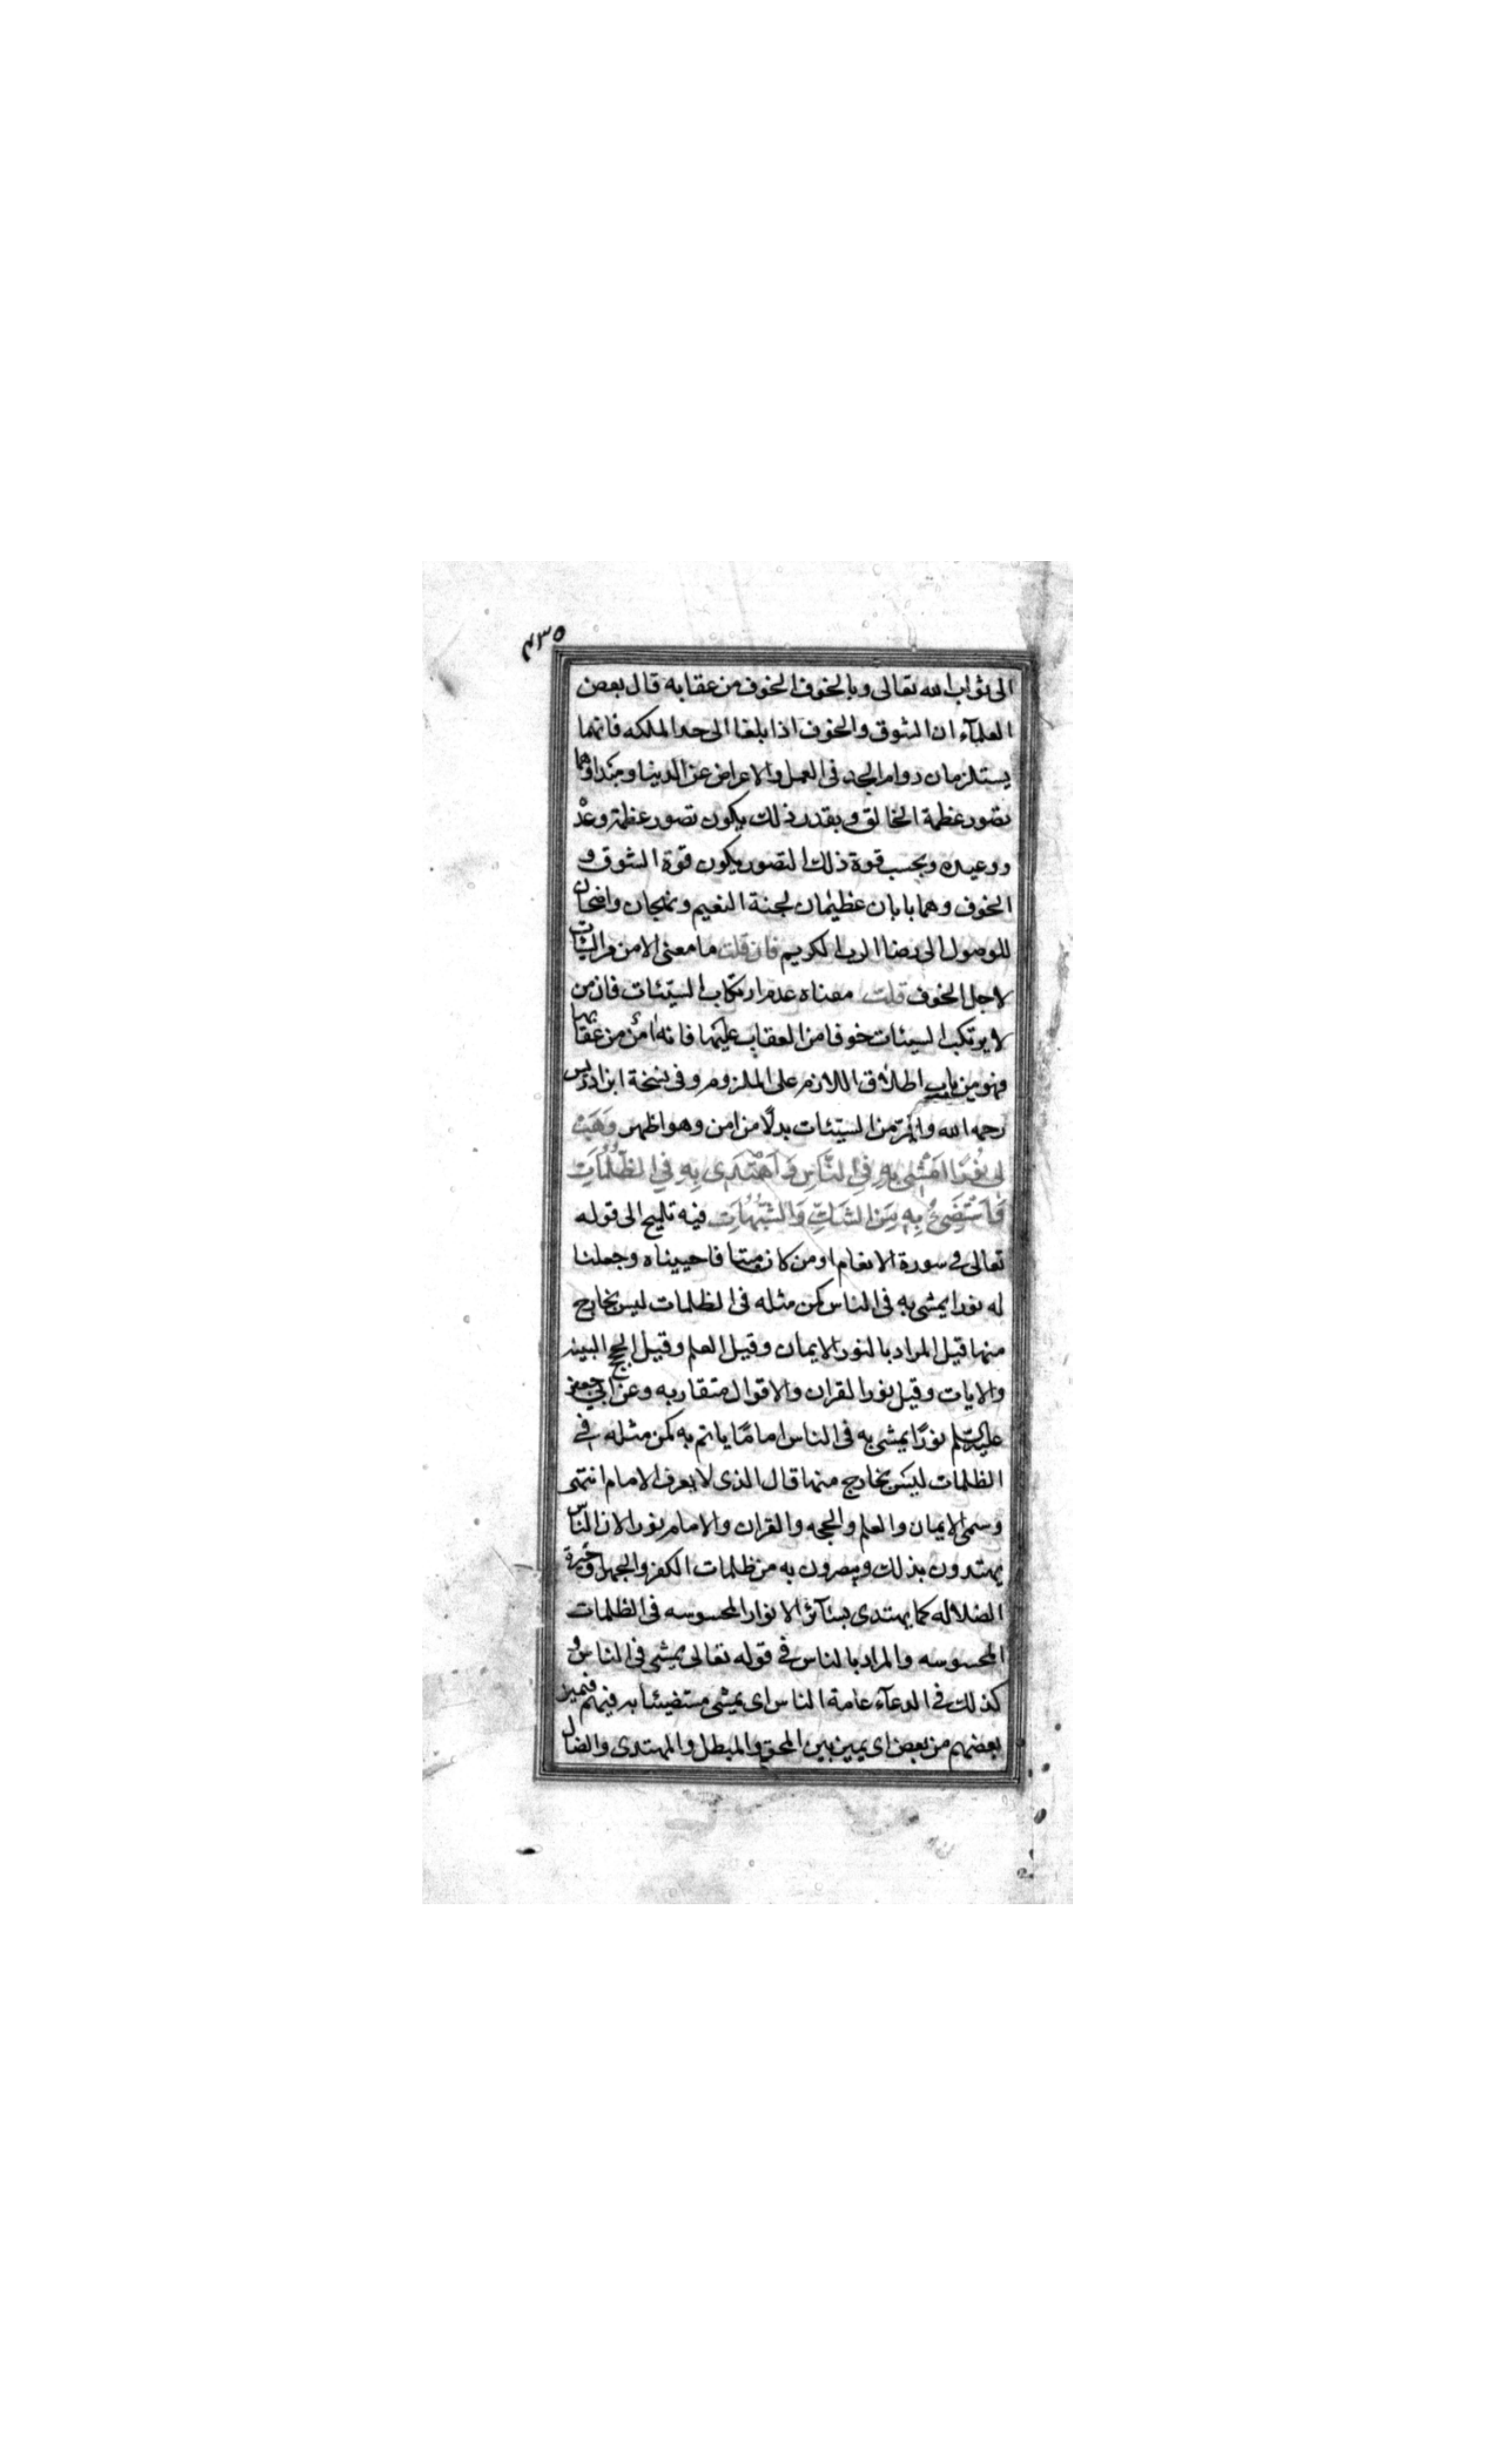 ٤٣٥
الى ثواب الله تعالى وبالخوف الخوف من عقابه قال بعض
العلمآء ان الشوق والخوف اذا بلغا الى حد الملكه فانهما
يستلزمان دوام الجد فى العمل والاعراض عن الدنيا ومبداوهما
تصور عظمة الخالق وبقدر ذلك يكون تصور عظمة وعده
ووعيده وبحسب قوة ذلك التصور يكون قوة الشوق و
الخوف وهما بابان عظيمان لجنة النعيم ونهجان واضحان
للوصول الى رضا الرب الكريم فان قلت ما معنى الامن من السيئات
لاجل الخوف قلت معناه عدم ارتكاب السيئات فان من
لا يرتكب السيئات خوفا من العقاب عليها فانه امن من عقابها
فهو من باب اطلاق اللازم على الملزوم وفى نسخة ابن ادريس
رحمه الله من السيئات بدلًا من امن وهو اظهر وَهَبْ
لى نُورًا اَمْشى بِهِ فِى النَّاسِ وَاَهْتَدى بِهِ فِى الظُّلُمَاتِ
وَاَسْتَضِىءُ بِهِ مِنَ الشَّكِّ وَالشُّبُهَاتِ فيه تلميح الى قوله
تعالى فى سورة الانعام اومن كان ميتا فاحييناه وجعلنا
له نورا يمشى به فى الناس كمن مثله فى الظلمات ليس بخارج
منها قيل المراد بالنور الايمان وقيل العلم وقيل الحجج البينه
والايات وقيل نور القران والاقوال متقاربه وعن ابى جعفر
عليه السلم نورًا يمشى به فى الناس امامًا ياتم به كمن مثله فى
الظلمات ليس بخارج منها قال الذى لا يعرف الامام انتهى
وسمى الايمان والعلم والحجه والقران والامام نورا لان الناس
يهتدون بذلك ويبصرون به من ظلمات الكفر والجهل وحيرة
الضلاله كما يهتدى بسآئر الانوار المحسوسه فى الظلمات
المحسوسه والمراد بالناس فى قوله تعالى يمشى فى الناس و
كذلك فى الدعآء عامة الناس اى يمشى مستضيئا به فيهم فيميز
بعضهم من بعض اى يميز بين المحق والمبطل والمهتدى والضال